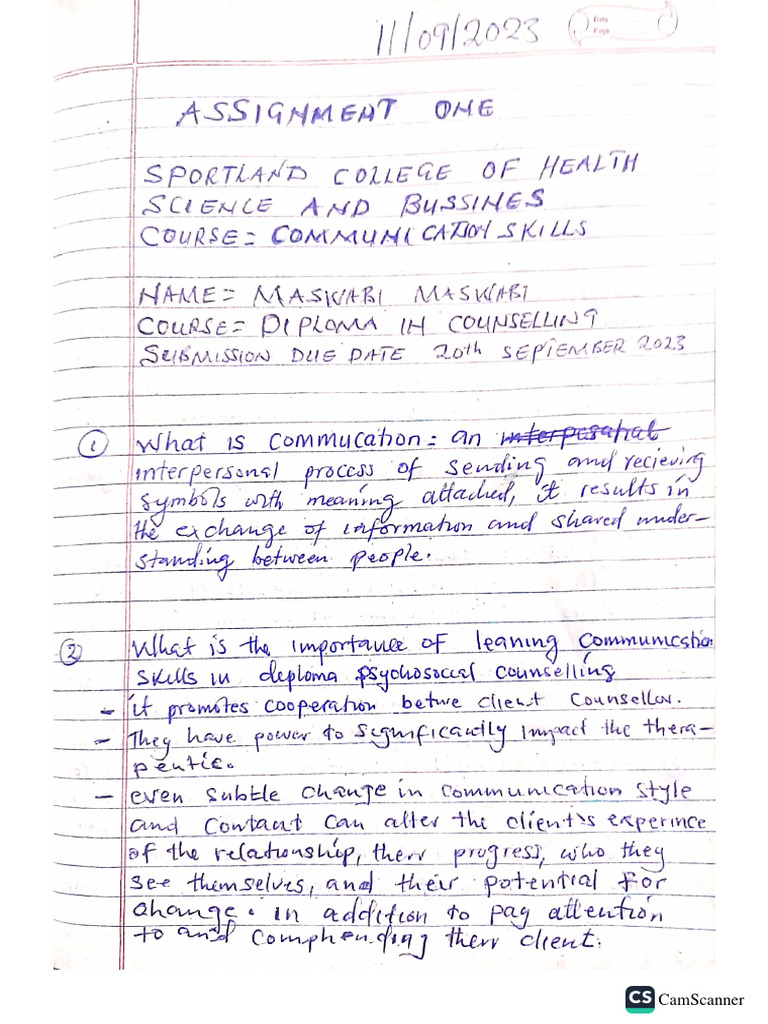 11/09/2023
Date
Page
ASSIGNMENT ONE
SPORTLAND COLLEGE OF HEALTH
SCIENCE AND BUSSINES
COURSE = COMMUNICATION SKILLS
NAME = MASWABI MASWABI
COURSE = DIPLOMA IN COUNSELLING
SUBMISSION DUE DATE 20th SEPTEMBER 2023
① What is commucation = an
interpersonal process of sending and recieving
symbols with meaning attached, it results in
the exchange of information and shared under-
standing between people.
② What is the importance of leaning communicatio
skills in deploma psychosocial counselling
- it promotes cooperation betwre client Counsellor.
- They have power to significantly impact the thera-
peutic.
- even subtle change in communication style
and contant can alter the client's experince
of the relationship, therr progress, who they
see themselves, and their potential for
change. in addition to pay attention
to and comphending therr client.
CS CamScanner